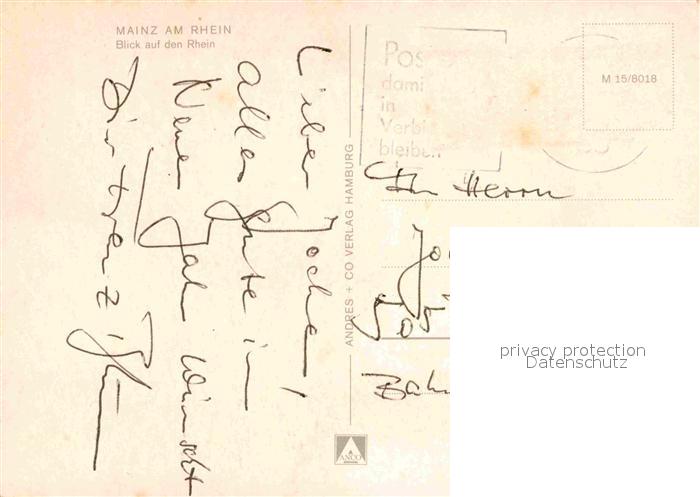 MAINZ AM RHEIN
Blick auf den Rhein
Lieber Joche!
alles Gute im
Neuen Jahr wünscht
Dir
ANDRES + CO VERLAG HAMBURG
ANCO
Pos
dami
in
Verbi
bleiben
M 15/8018
Herrn
Jo
Bah
privacy protection
Datenschutz